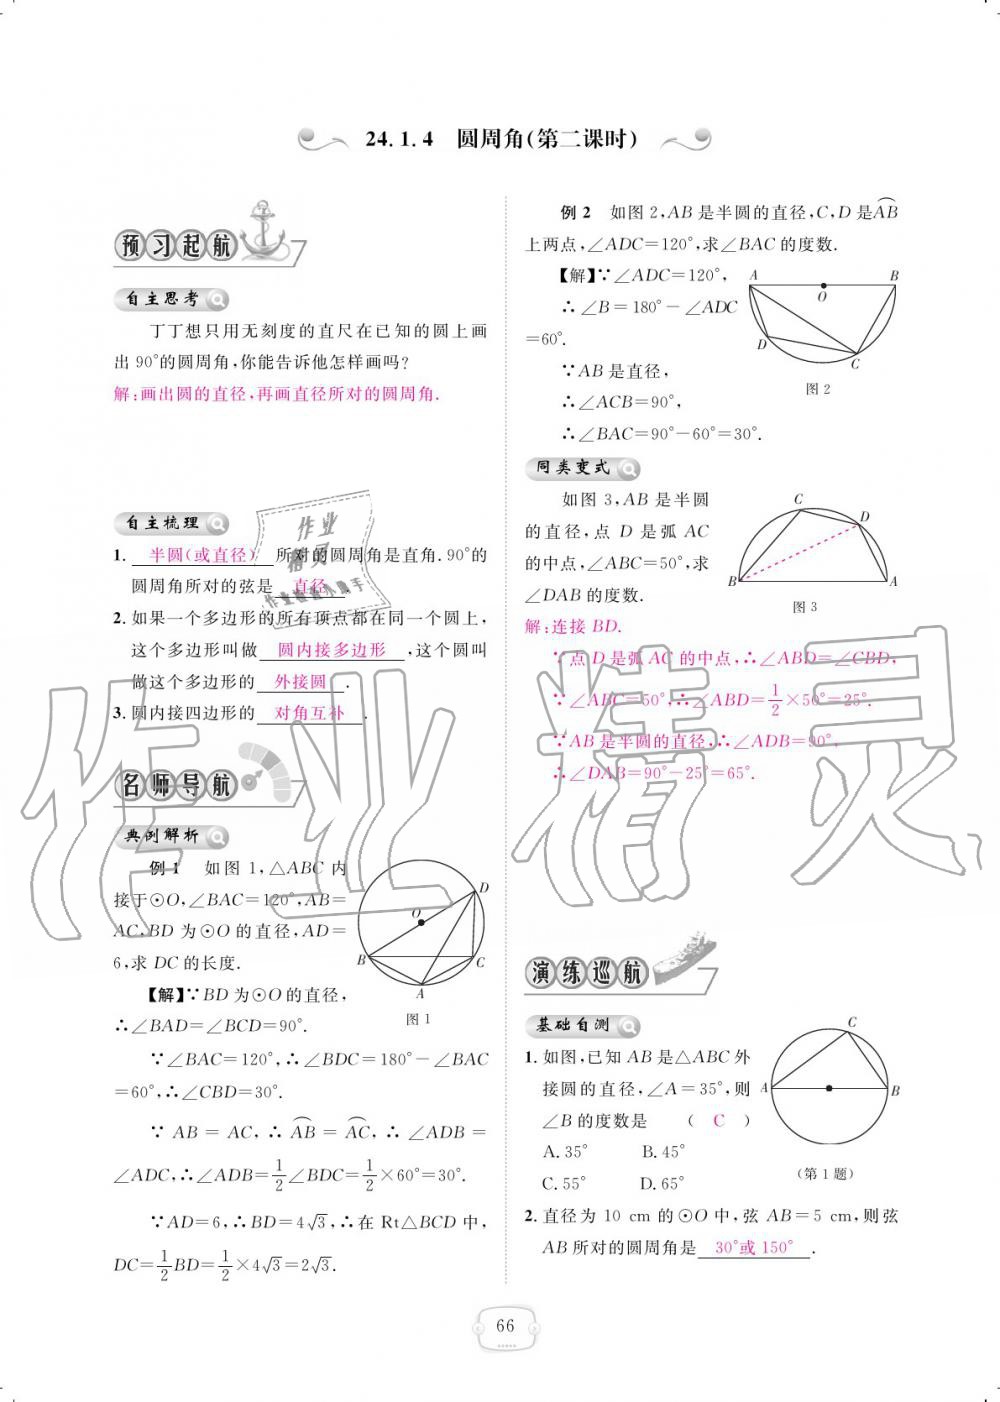 24.1.4 圆周角(第二课时)
预习起航
自主思考
丁丁想只用无刻度的直尺在已知的圆上画
出90°的圆周角,你能告诉他怎样画吗?
解:画出圆的直径,再画直径所对的圆周角.
自主梳理
1. 半圆(或直径) 所对的圆周角是直角.90°的
圆周角所对的弦是 直径 .
2. 如果一个多边形的所有顶点都在同一个圆上,
这个多边形叫做 圆内接多边形 ,这个圆叫
做这个多边形的 外接圆 .
3. 圆内接四边形的 对角互补 .
名师导航
典例解析
例1 如图1,△ABC内
接于⊙O,∠BAC=120°,AB=
AC,BD为⊙O的直径,AD=
6,求DC的长度.
D
O
B
C
A
图1
【解】∵BD为⊙O的直径,
∴∠BAD=∠BCD=90°.
∵∠BAC=120°,∴∠BDC=180°-∠BAC
=60°,∴∠CBD=30°.
∵AB=AC,∴A͡B=A͡C,∴∠ADB=
∠ADC,∴∠ADB=1/2∠BDC=1/2×60°=30°.
∵AD=6,∴BD=4√3,∴在Rt△BCD中,
DC=1/2BD=1/2×4√3=2√3.
例2 如图2,AB是半圆的直径,C,D是A͡B
上两点,∠ADC=120°,求∠BAC的度数.
【解】∵∠ADC=120°,
∴∠B=180°-∠ADC
=60°.
∵AB是直径,
∴∠ACB=90°,
∴∠BAC=90°-60°=30°.
A
B
O
D
C
图2
同类变式
如图3,AB是半圆
的直径,点D是弧AC
的中点,∠ABC=50°,求
∠DAB的度数.
C
D
B
A
图3
解:连接BD.
∵点D是弧AC的中点,∴∠ABD=∠CBD,
∵∠ABC=50°,∴∠ABD=1/2×50°=25°.
∵AB是半圆的直径,∴∠ADB=90°,
∴∠DAB=90°-25°=65°.
演练巡航
基础自测
1. 如图,已知AB是△ABC外
接圆的直径,∠A=35°,则
∠B的度数是 ( C )
A.35° B.45°
C.55° D.65°
C
A
B
(第1题)
2. 直径为10 cm的⊙O中,弦AB=5 cm,则弦
AB所对的圆周角是 30°或150° .
66
作业精灵
作业
精灵